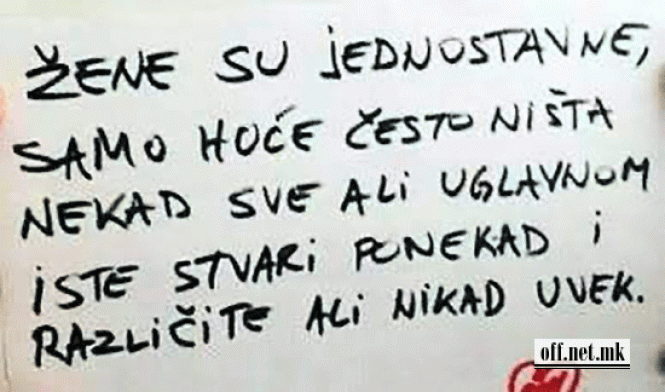 ŽENE SU JEDNOSTAVNE,
SAMO HOĆE ČESTO NIŠTA
NEKAD SVE ALI UGLAVNOM
ISTE STVARI PONEKAD I
RAZLIČITE ALI NIKAD UVEK.
off.net.mk